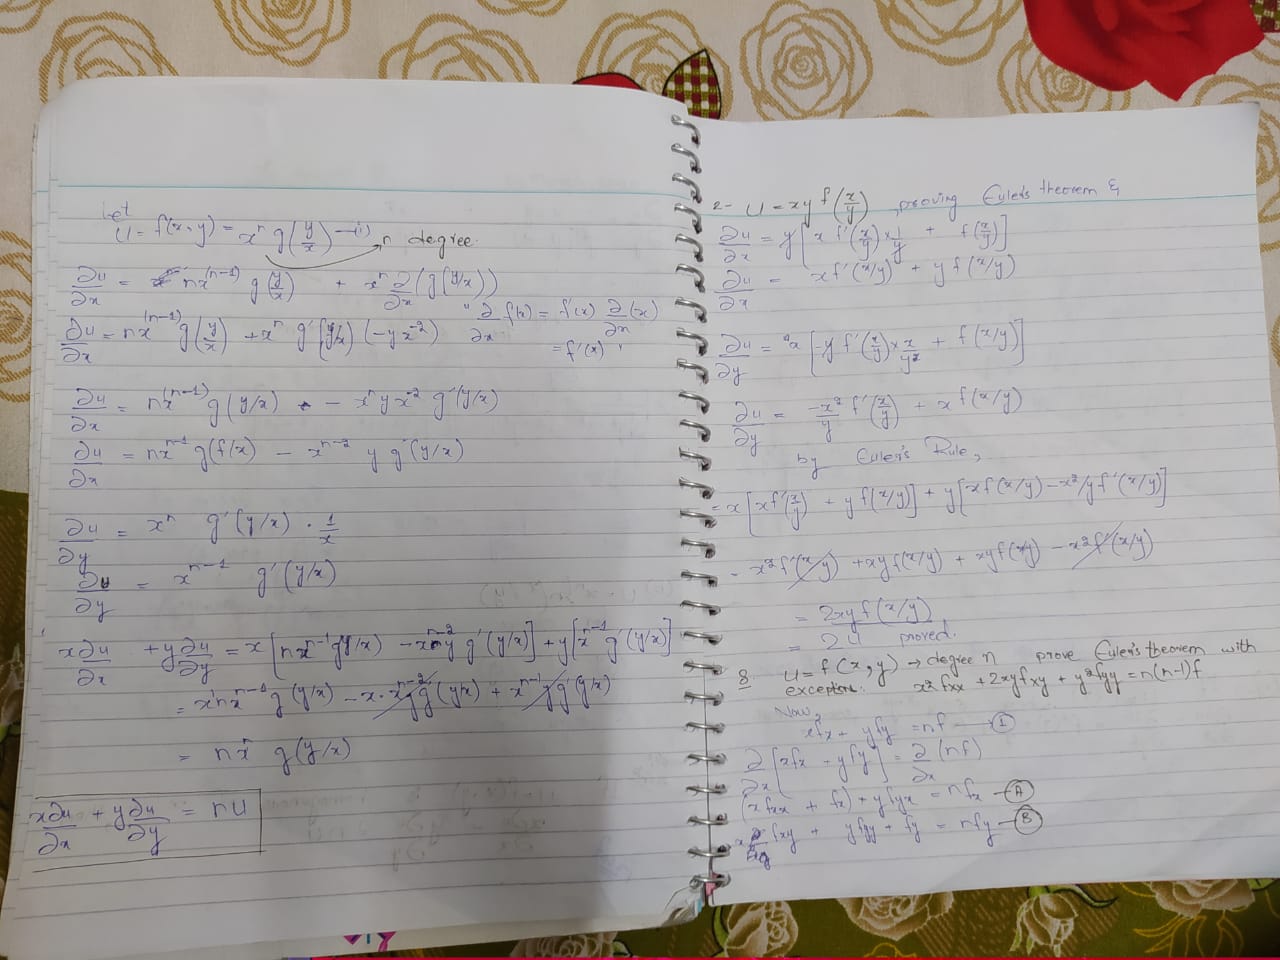 Let
U = f(x,y) = xⁿ g(y/x) —(1) n degree.
∂u/∂x = nx^(n-1) g(y/x) + xⁿ ∂/∂x (g(y/x))
"∂/∂x f(x) = f'(x) ∂/∂x (x)
= f'(x)"
∂u/∂x = nx^(n-1) g(y/x) + xⁿ g'(y/x) (-yx⁻²)
∂u/∂x = nx^(n-1) g(y/x) - xⁿ y x⁻² g'(y/x)
∂u/∂x = nx^(n-1) g(f(x) - x^(n-2) y g'(y/x)
∂u/∂y = xⁿ g'(y/x) · 1/x
∂u/∂y = x^(n-1) g'(y/x)
x∂u/∂x + y∂u/∂y = x[nx^(n-1) g(y/x) - x^(n-2) y g'(y/x)] + y[x^(n-1) g'(y/x)]
= x n x^(n-1) g(y/x) - x·x^(n-2) y g'(y/x) + x^(n-1) y g'(y/x)
= nxⁿ g(y/x)
x∂u/∂x + y∂u/∂y = nU
2- U = xy f(x/y), proving Euler's theorem &
∂u/∂x = y[x f'(x/y) × 1/y + f(x/y)]
∂u/∂x = xf'(x/y) + yf(x/y)
∂u/∂y = x[-y f'(x/y) × x/y² + f(x/y)]
∂u/∂y = -x²/y f'(x/y) + xf(x/y)
by Euler's Rule,
= x[xf'(x/y) + yf(x/y)] + y[xf(x/y) - x²/y f'(x/y)]
- x²f'(x/y) + xyf(x/y) + xyf(x/y) - x²f'(x/y)
= 2xyf(x/y)
= 2U proved.
8. U = f(x,y) → degree n prove Euler's theorem with
x²fxx + 2xyfxy + y²fyy = n(n-1)f
Now,
xfx + yfy = nf —①
∂/∂x [xfx + yfy] = ∂/∂x (nf)
(xfxx + fx) + yfyx = nfx —Ⓐ
x fxy + yfyy + fy = nfy —Ⓑ